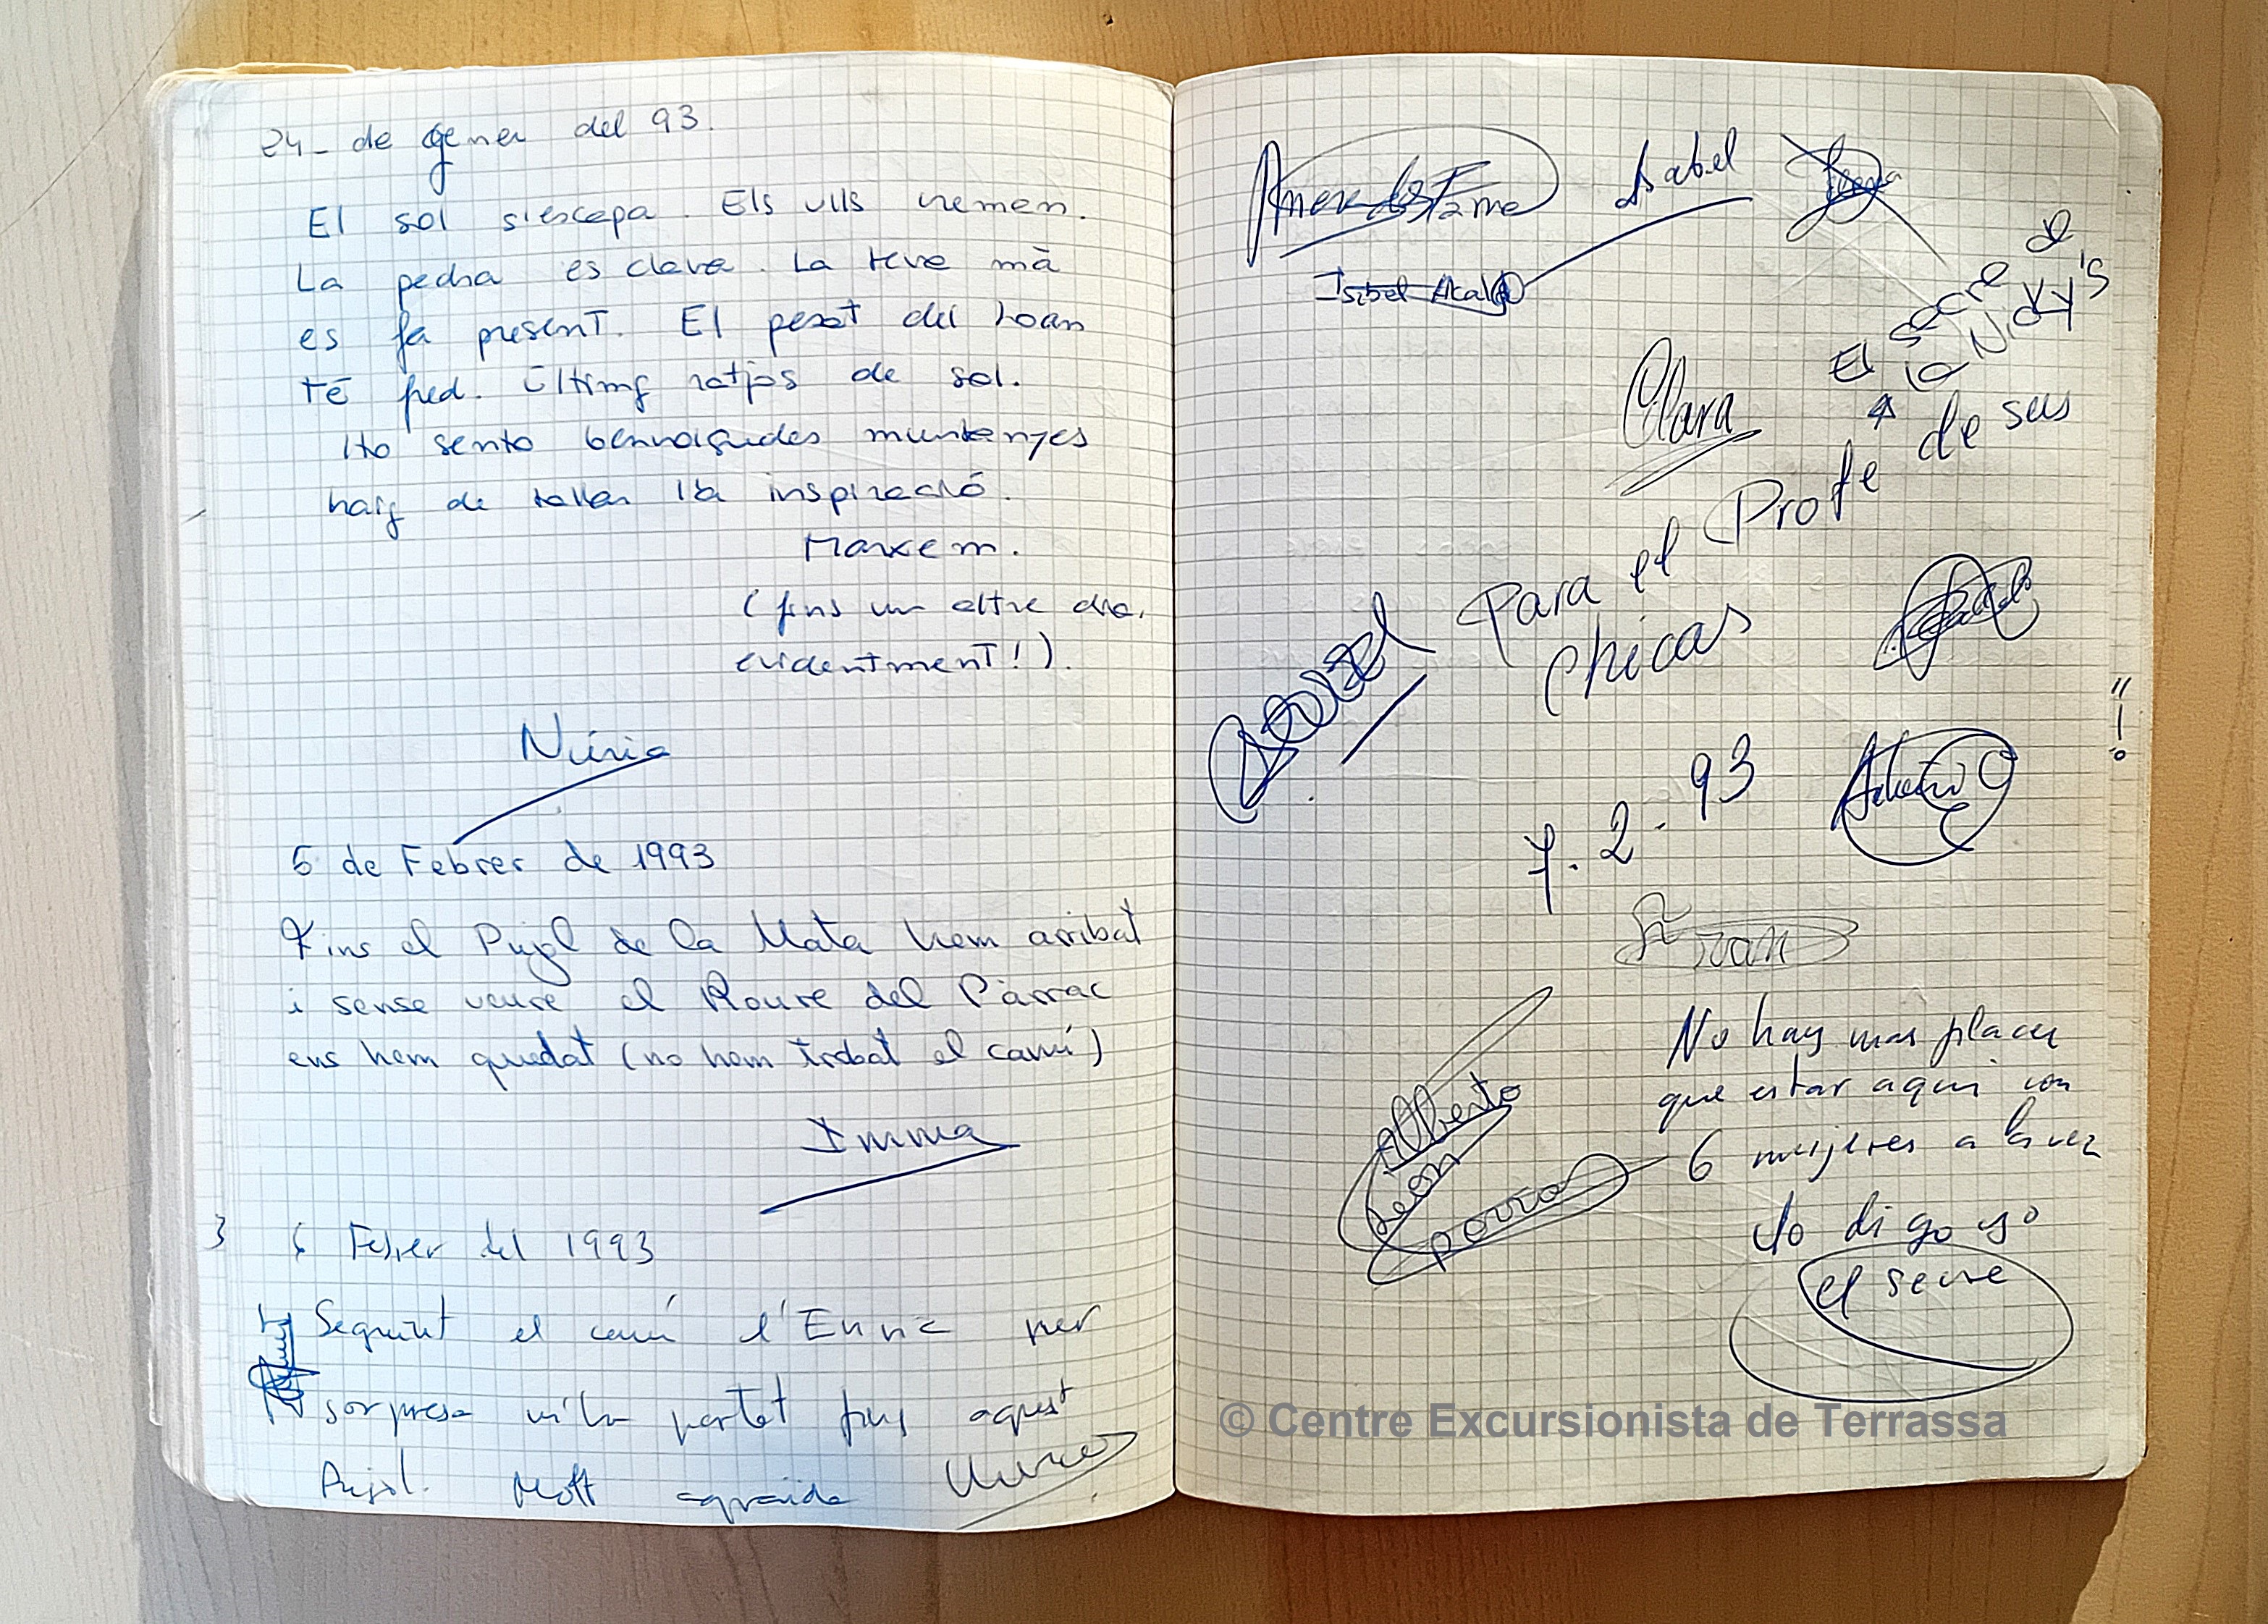 24 - de gener del 93.
El sol s'escapa. Els ulls cremen.
La pedra es clava. La teva mà
es fa present. El peret del Joan
té fred. Últims ratjos de sol.
Ho sento benvolgudes muntanyes
haig de tallar la inspiració.
Marxem.
(fins un altre dia,
evidentment!).
Núria
5 de Febrer de 1993
Fins el Pujol de la Mata hem arribat
i sense veure el Roure del Pàrrac
ens hem quedat (no hem trobat el camí)
Imma
6 Febrer del 1993
Seguint el camí l'Enric per
sorpresa m'ha portat fins aquest
Pujol. Molt agraïda
Isabel
Isabel
Clara
El secre de
la Nidy's
Para el Profe de sus
chicas
"!"
7. 2. 93
Antonio
Juan
Alberto
León
porras
No hay mas placer
que estar aqui con
6 mujeres a la vez
lo digo yo
el secre
© Centre Excursionista de Terrassa